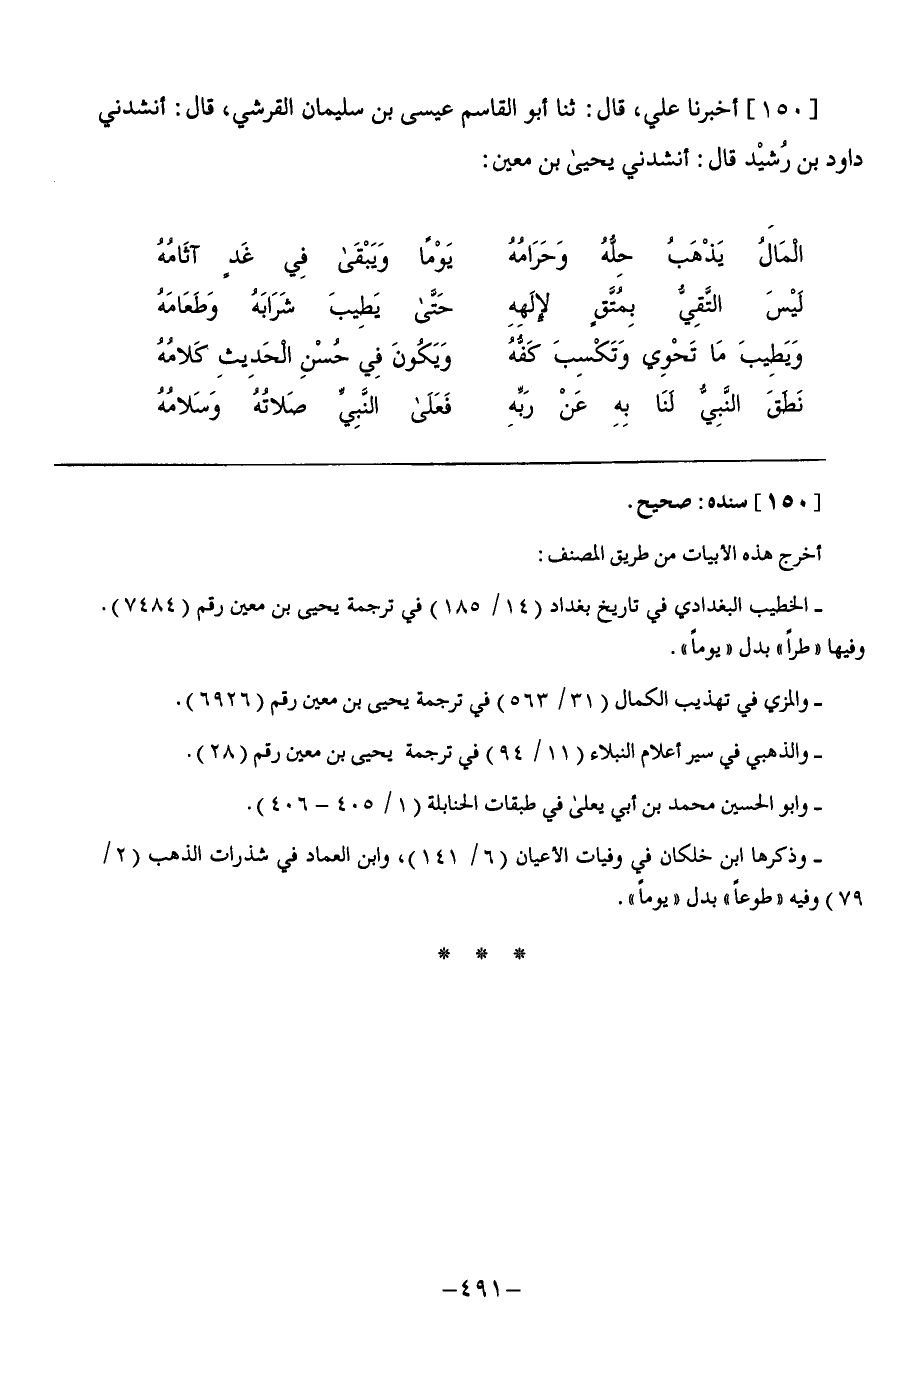 [١٥٠] أخبرنا علي، قال: ثنا أبو القاسم عيسى بن سليمان القرشي، قال: أنشدني
داود بن رُشيْد قال: أنشدني يحيىٰ بن معين:
الْمَالُ يَذْهَبُ حِلُّهُ وَحَرَامُهُ يَوْمًا وَيَبْقَىٰ فِي غَدٍ آثَامُهُ
لَيْسَ التَّقِيُّ بِمُتَّقٍ لإِلَهِهِ حَتَّىٰ يَطِيبَ شَرَابَهُ وَطَعَامَهُ
وَيَطِيبَ مَا تَحْوِي وَتَكْسِبَ كَفُّهُ وَيَكُونَ فِي حُسْنِ الْحَدِيثِ كَلامُهُ
نَطَقَ النَّبِيُّ لَنَا بِهِ عَنْ رَبِّهِ فَعَلَىٰ النَّبِيِّ صَلاتُهُ وَسَلامُهُ
[١٥٠] سنده: صحيح.
أخرج هذه الأبيات من طريق المصنف:
ـ الخطيب البغدادي في تاريخ بغداد (١٤/ ١٨٥) في ترجمة يحيى بن معين رقم (٧٤٨٤).
وفيها «طراً» بدل «يوماً».
ـ والمزي في تهذيب الكمال (٣١/ ٥٦٣) في ترجمة يحيى بن معين رقم (٦٩٢٦).
ـ والذهبي في سير أعلام النبلاء (١١/ ٩٤) في ترجمة يحيى بن معين رقم (٢٨).
ـ وابو الحسين محمد بن أبي يعلىٰ في طبقات الحنابلة (١/ ٤٠٥ – ٤٠٦).
ـ وذكرها ابن خلكان في وفيات الأعيان (٦/ ١٤١)، وابن العماد في شذرات الذهب (٢/
٧٩) وفيه «طوعاً» بدل «يوماً».
* * *
–٤٩١–